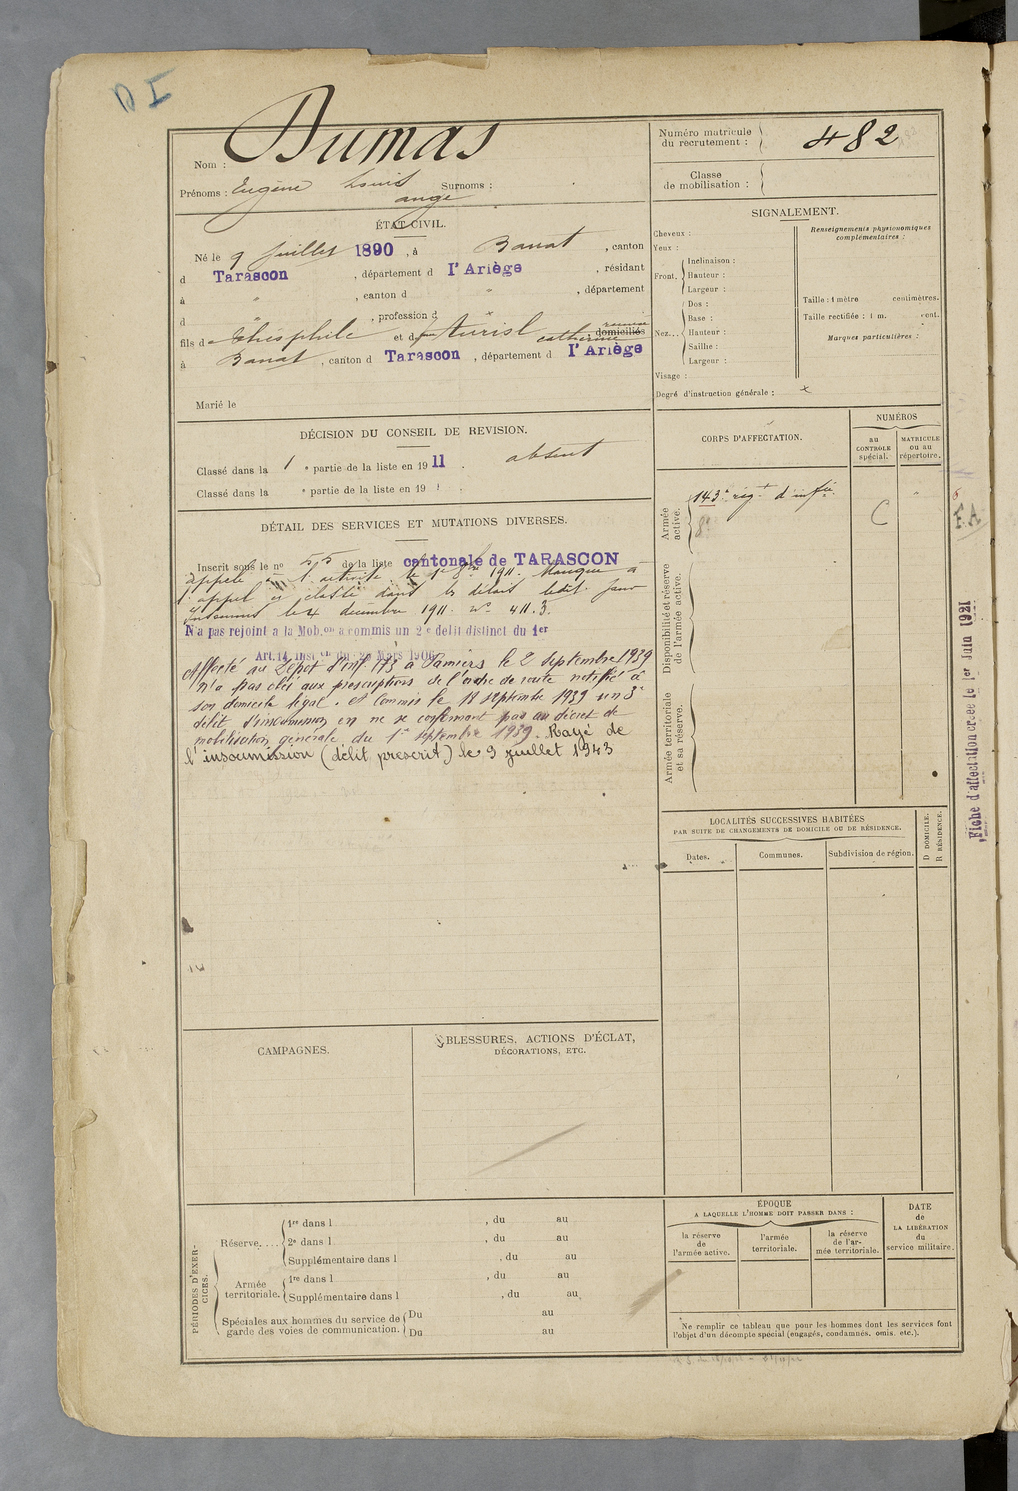 D I
Nom : Dumas
Prénoms : Eugène Louis Surnoms :
ange
Numéro matricule
du recrutement : 482
Classe
de mobilisation :
ÉTAT CIVIL.
Né le 9 Juillet 1890, à Banat, canton
d Tarascon, département d l'Ariège, résidant
à " , canton d " , département
d , profession d
fils de Théophile et d catherine domiciliés
à Banat, canton d Tarascon, département d l'Ariège
Marié le
SIGNALEMENT.
Cheveux :
Yeux :
Front. Inclinaison :
Hauteur :
Largeur :
Nez... Dos :
Base :
Hauteur :
Saillie :
Largeur :
Visage :
Renseignements physionomiques
complémentaires :
Taille : 1 mètre centimètres.
Taille rectifiée : 1 m. cent.
Marques particulières :
Degré d'instruction générale : x
DÉCISION DU CONSEIL DE REVISION.
Classé dans la 1 e partie de la liste en 1911. absent
Classé dans la e partie de la liste en 19 .
DÉTAIL DES SERVICES ET MUTATIONS DIVERSES.
Inscrit sous le no 55 de la liste cantonale de TARASCON
appelé à l'activité le 1er 8bre 1911. Manque à
l'appel et classé dans les délais
Insoumis le 4 décembre 1911. No 411.3.
N'a pas rejoint à la Mob.on a commis un 2e délit distinct du 1er
Art. 14 Inst.on du 20 Mars 1906
Affecté au Dépôt d'Inf. 173 à Pamiers le 2 septembre 1939
n'a pas obéi aux prescriptions de l'ordre de route notifié à
son domicile légal. et commis le 18 septembre 1939 un 3e
délit d'insoumission en ne se conformant pas au décret de
mobilisation générale du 1er septembre 1939. Rayé de
l'insoumission (délit prescrit) le 9 juillet 1943
CORPS D'AFFECTATION.
NUMÉROS
au
CONTROLE
spécial.
MATRICULE
ou au
répertoire.
Armée
active.
143e régt d'infie
C
Disponibilité et réserve
de l'armée active.
Armée territoriale
et sa réserve.
F.A
Fiche d'affectation créée le 1er Juin 1921
LOCALITÉS SUCCESSIVES HABITÉES
PAR SUITE DE CHANGEMENTS DE DOMICILE OU DE RÉSIDENCE.
D DOMICILE.
R RÉSIDENCE.
Dates. Communes. Subdivision de région.
CAMPAGNES.
BLESSURES, ACTIONS D'ÉCLAT,
DÉCORATIONS, ETC.
PÉRIODES D'EXER-
CICES.
Réserve.... 1re dans l , du au
2e dans l , du au
Supplémentaire dans l , du au
Armée
territoriale. 1re dans l , du au
Supplémentaire dans l , du au
Spéciales aux hommes du service de
garde des voies de communication. Du au
Du au
ÉPOQUE
A LAQUELLE L'HOMME DOIT PASSER DANS :
la réserve
de
l'armée active.
l'armée
territoriale.
la réserve
de l'ar-
mée territoriale.
DATE
de
LA LIBÉRATION
du
service militaire.
Ne remplir ce tableau que pour les hommes dont les services font
l'objet d'un décompte spécial (engagés, condamnés, omis, etc.).